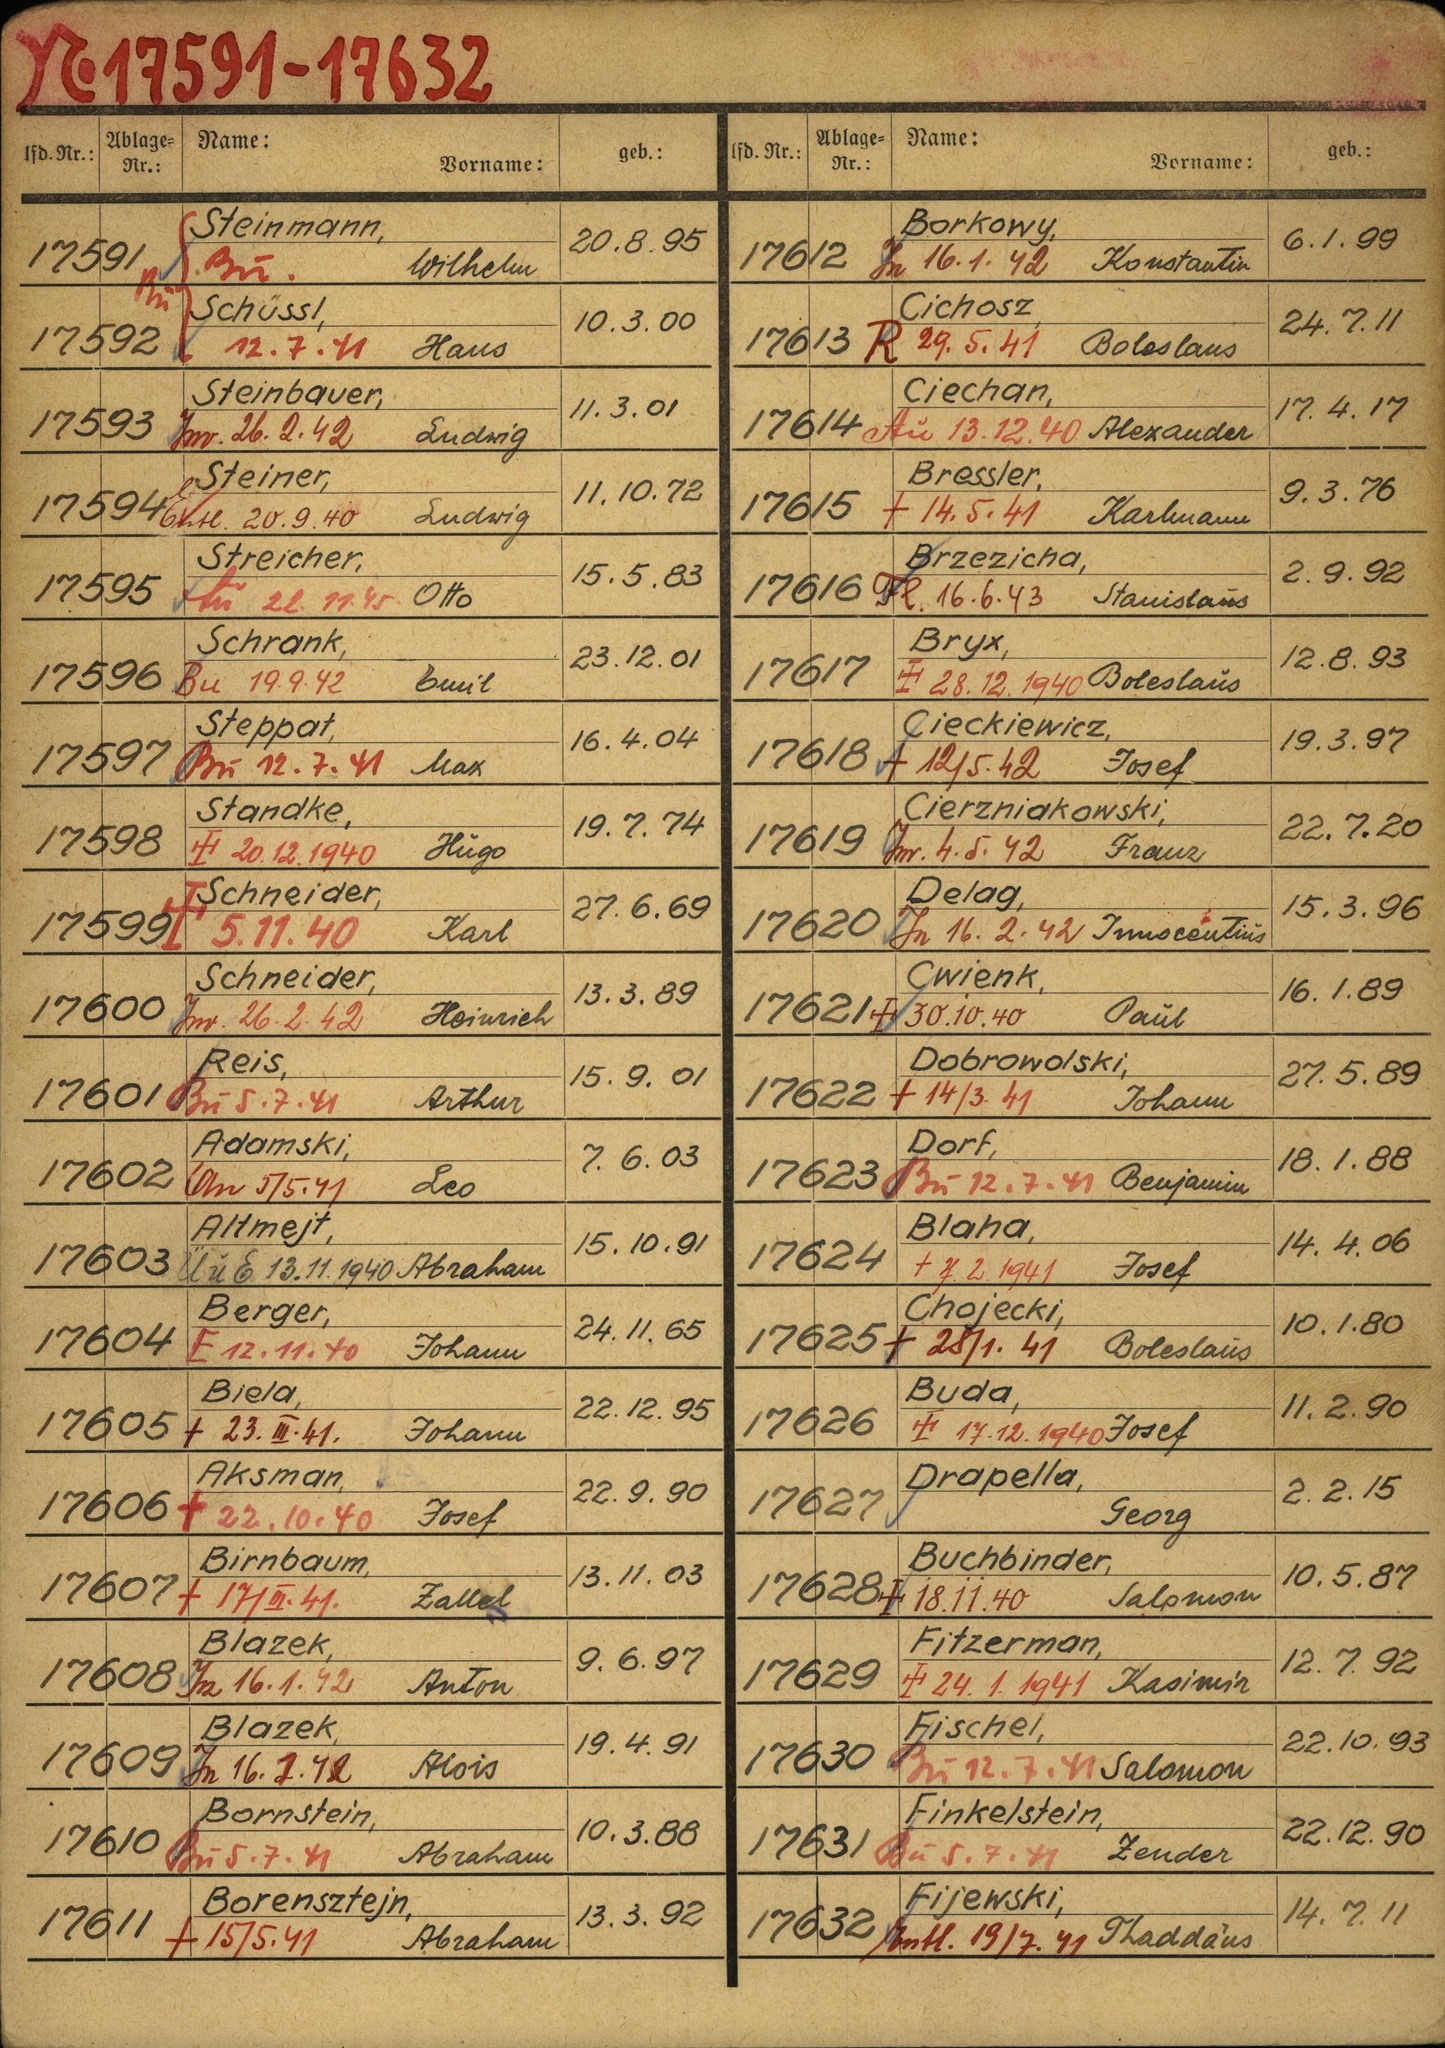 № 17591-17632
lfd. Nr.: Ablage-Nr.: Name: Vorname: geb.:
17591 Steinmann, Bu. Wilhelm 20.8.95
Bu
17592 Schüssl, 12.7.41 Hans 10.3.00
17593 Steinbauer, Inv. 26.2.42 Ludwig 11.3.01
17594 Steiner, Entl. 20.9.40 Ludwig 11.10.72
17595 Streicher, Otto 15.5.83
17596 Schrank, Bu 19.9.42 Emil 23.12.01
17597 Steppat, Bu 12.7.41 Max 16.4.04
17598 Standke, ‡ 20.12.1940 Hugo 19.7.74
17599 Schneider, ‡ 5.11.40 Karl 27.6.69
17600 Schneider, Inv. 26.2.42 Heinrich 13.3.89
17601 Reis, Bu 5.7.41 Arthur 15.9.01
17602 Adamski, 5/5.41 Leo 7.6.03
17603 Altmejt, Üu E 13.11.1940 Abraham 15.10.91
17604 Berger, E 12.11.40 Johann 24.11.65
17605 Biela, + 23.III.41. Johann 22.12.95
17606 Aksman, + 22.10.40 Josef 22.9.90
17607 Birnbaum, + 17/III.41. Zallel 13.11.03
17608 Blazek, In 16.1.42 Anton 9.6.97
17609 Blazek, In 16.1.42 Alois 19.4.91
17610 Bornstein, Bu 5.7.41 Abraham 10.3.88
17611 Borensztejn, + 15/5.41 Abraham 13.3.92
lfd. Nr.: Ablage-Nr.: Name: Vorname: geb.:
17612 Borkowy, In 16.1.42 Konstantin 6.1.99
17613 Cichosz, R 29.5.41 Boleslaus 24.7.11
17614 Ciechan, Au 13.12.40 Alexander 17.4.17
17615 Bressler, + 14.5.41 Karlmann 9.3.76
17616 Brzezicha, Fl. 16.6.43 Stanislaus 2.9.92
17617 Bryx, ‡ 28.12.1940 Boleslaus 12.8.93
17618 Cieckiewicz, + 12/5.42 Josef 19.3.97
17619 Cierzniakowski, Inv. 4.5.42 Franz 22.7.20
17620 Delag, In 16.2.42 Innocentius 15.3.96
17621 Cwienk, ‡ 30.10.40 Paul 16.1.89
17622 Dobrowolski, + 14/3.41 Johann 27.5.89
17623 Dorf, Bu 12.7.41 Benjamin 18.1.88
17624 Blaha, + 7.2.1941 Josef 14.4.06
17625 Chojecki, + 28/1.41 Boleslaus 10.1.80
17626 Buda, ‡ 17.12.1940 Josef 11.2.90
17627 Drapella, Georg 2.2.15
17628 Buchbinder, ‡ 18.11.40 Salomon 10.5.87
17629 Fitzerman, ‡ 24.1.1941 Kasimir 12.7.92
17630 Fischel, Bu 12.7.41 Salomon 22.10.93
17631 Finkelstein, Bu 5.7.41 Zender 22.12.90
17632 Fijewski, Entl. 19/7.41 Thaddäus 14.7.11